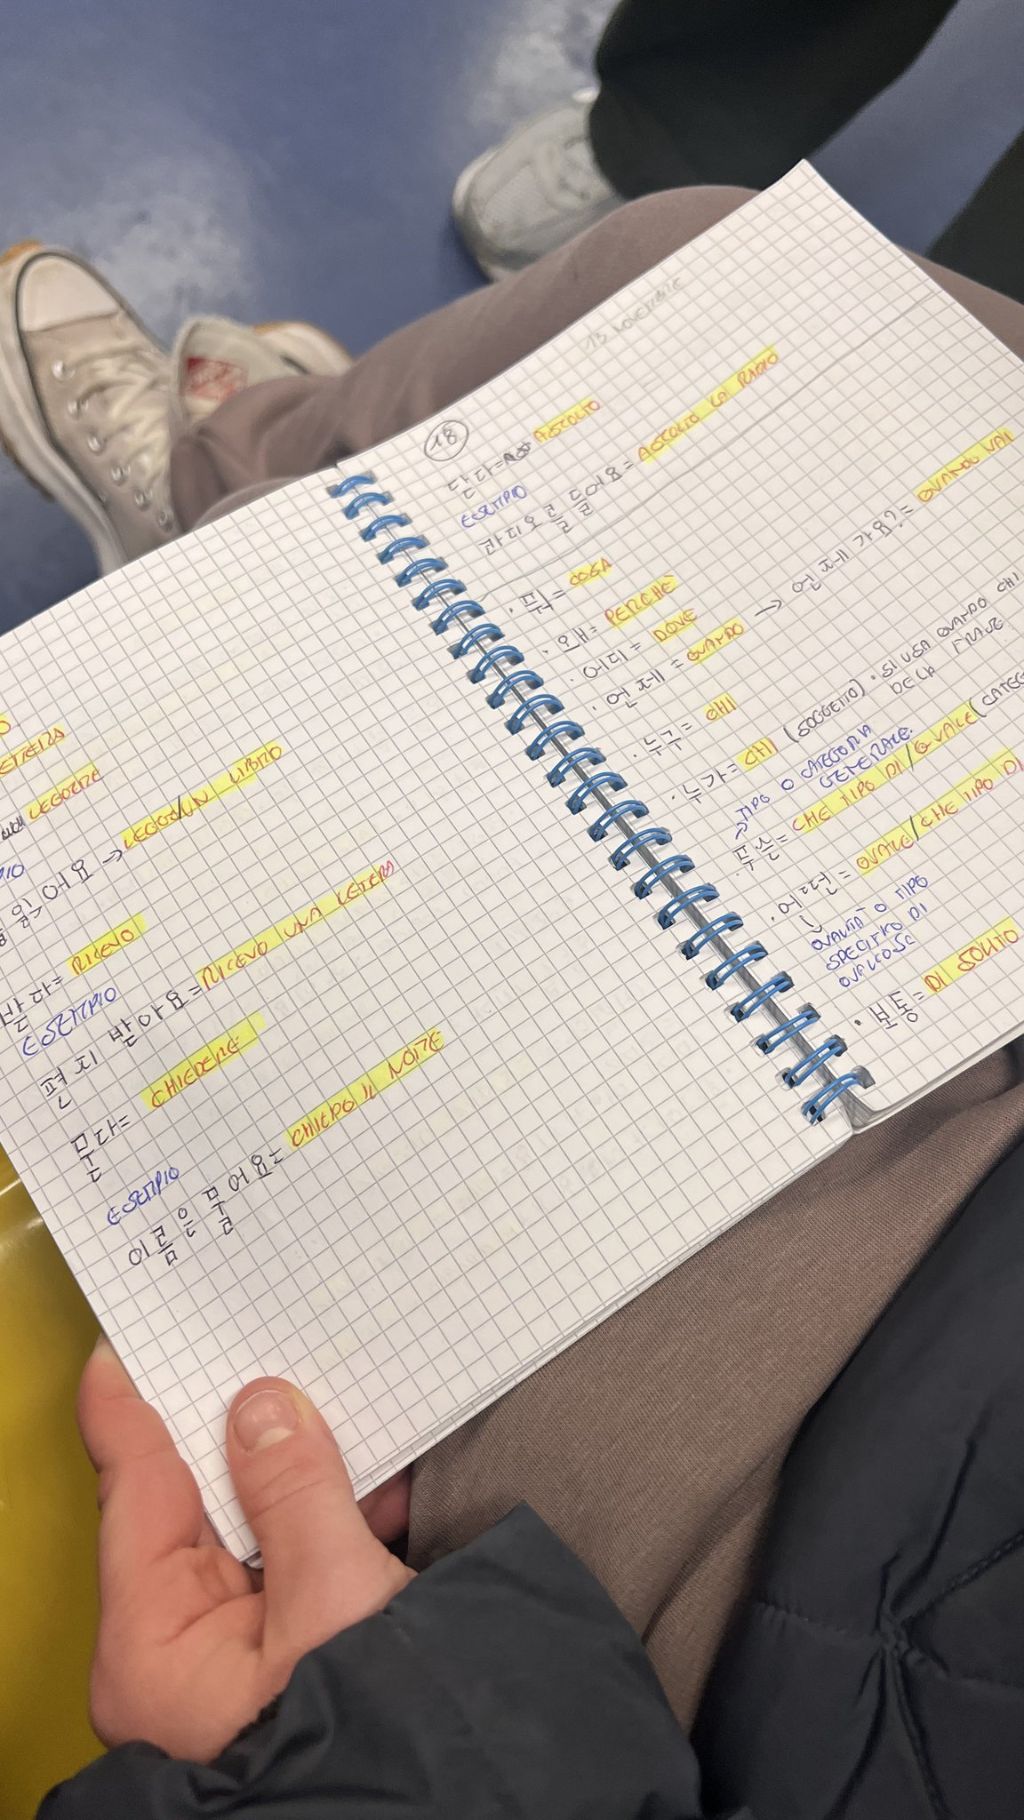 LEGGERE
읽어요 → LEGGO UN LIBRO
받다= RICEVO
ESEMPIO
편지 받아요= RICEVO UNA LETTERA
묻다= CHIEDERE
ESEMPIO
이름은 물어요= CHIEDO IL NOME
13 NOVEMBRE
18
ASCOLTO
ESEMPIO
라디오를 들어요= ASCOLTO LA RADIO
· 뭐= COSA
· 왜= PERCHÉ
· 어디= DOVE
· 언제= QUANDO → 언제 가요?= QUANDO VAI
· 누구= CHI
· 누가= CHI (SOGGETTO) · SI USA QUANDO CHI
DELLA FRASE
→ TIPO O CATEGORIA
GENERALE.
· 무슨= CHE TIPO DI/QUALE (CATEG
· 어떤= QUALE/CHE TIPO DI
↓ QUALITÀ O TIPO
SPECIFICO DI
QUALCOSA
· 보통= DI SOLITO